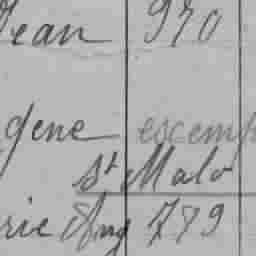 Jean 970
gene escemp
St Malo
rie Ang 779